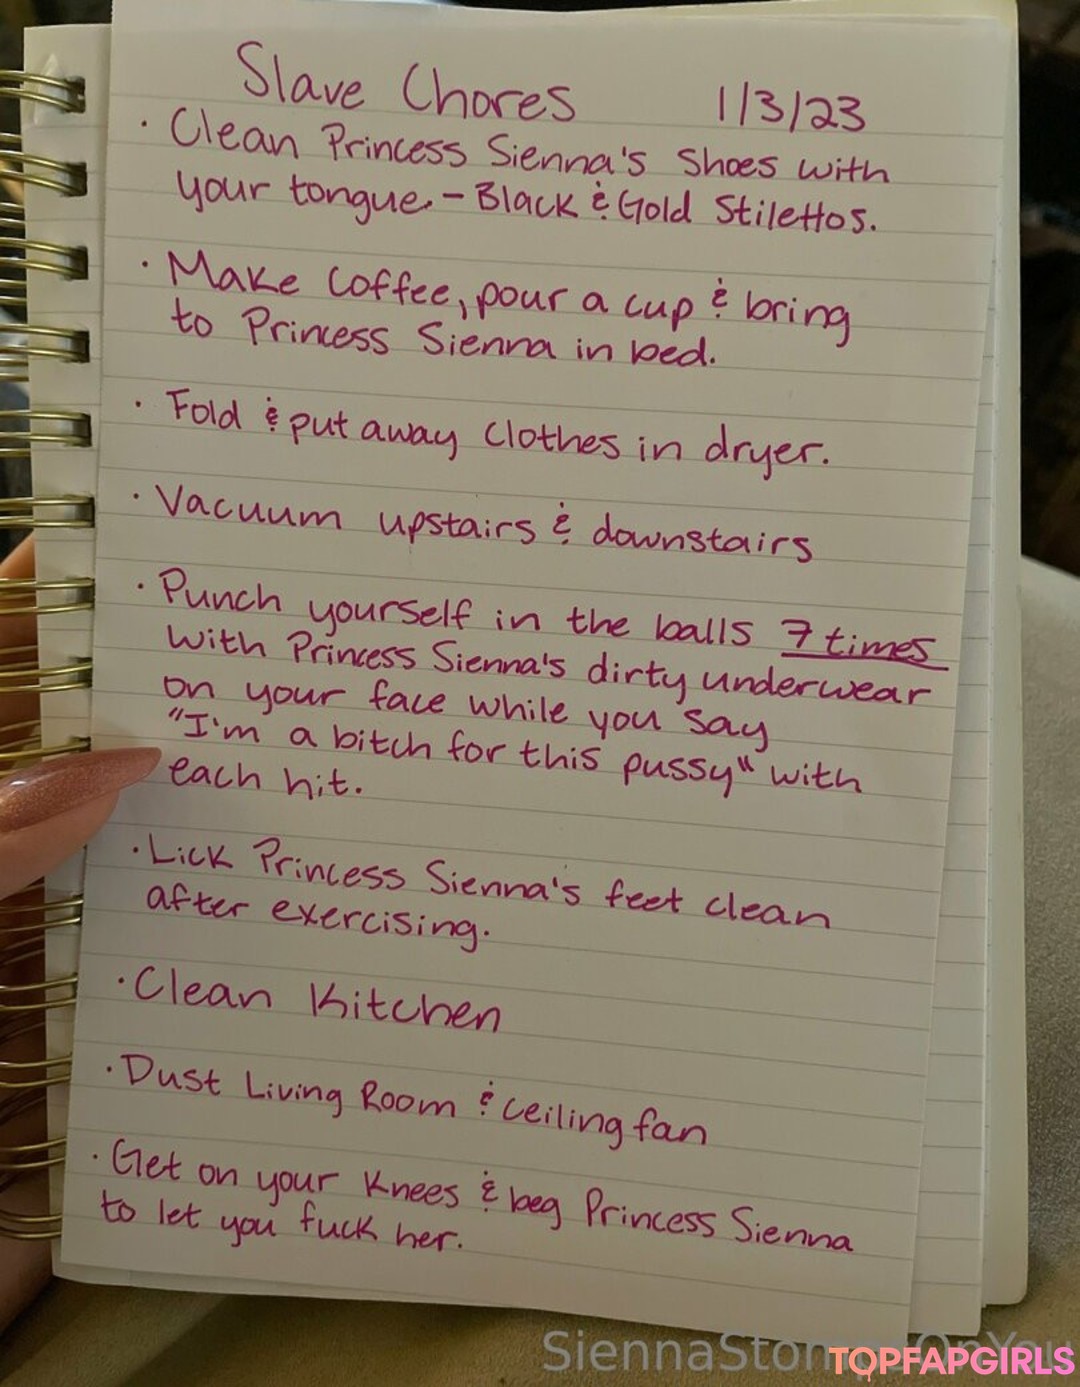 Slave Chores 1/3/23
· Clean Princess Sienna's Shoes with
your tongue. - Black & Gold Stilettos.
· Make Coffee, pour a cup & bring
to Princess Sienna in bed.
· Fold & put away Clothes in dryer.
· Vacuum upstairs & downstairs
· Punch yourself in the balls 7 times
with Princess Sienna's dirty underwear
on your face while you say
"I'm a bitch for this pussy" with
each hit.
· Lick Princess Sienna's feet clean
after exercising.
· Clean Kitchen
· Dust Living Room & Ceiling fan
· Get on your Knees & beg Princess Sienna
to let you fuck her.
TOPFAPGIRLS